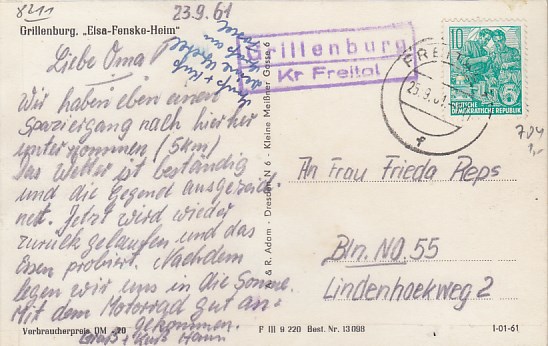 8211
23.9.61
Grillenburg. „Elsa-Fenske-Heim"
Liebe Oma!
Wir haben eben einen
Spaziergang nach hierher
unternommen (5km)
Das Wetter ist beständig
und die Gegend ausgezeich
net. Jetzt wird wieder
zurück gelaufen und das
Essen probiert. Nachdem
legen wir uns in die Sonne.
Mit dem Motorrad gut an-
gekommen.
Gruß + Kuss
Verbraucherpreis DM -,20
Gruß + Kuss
A & R. Adam - Dresden N 6 - Kleine Meißner Gasse 6
Grillenburg
Kr Freital
FREITAL
23.9.61
10
DEUTSCHE
DEMOKRATISCHE REPUBLIK
704
1,-
An Frau Frieda Reps
Bln. NO. 55
Lindenhoekweg 2
F III 9 220 Best. Nr. 13 098
I-01-61